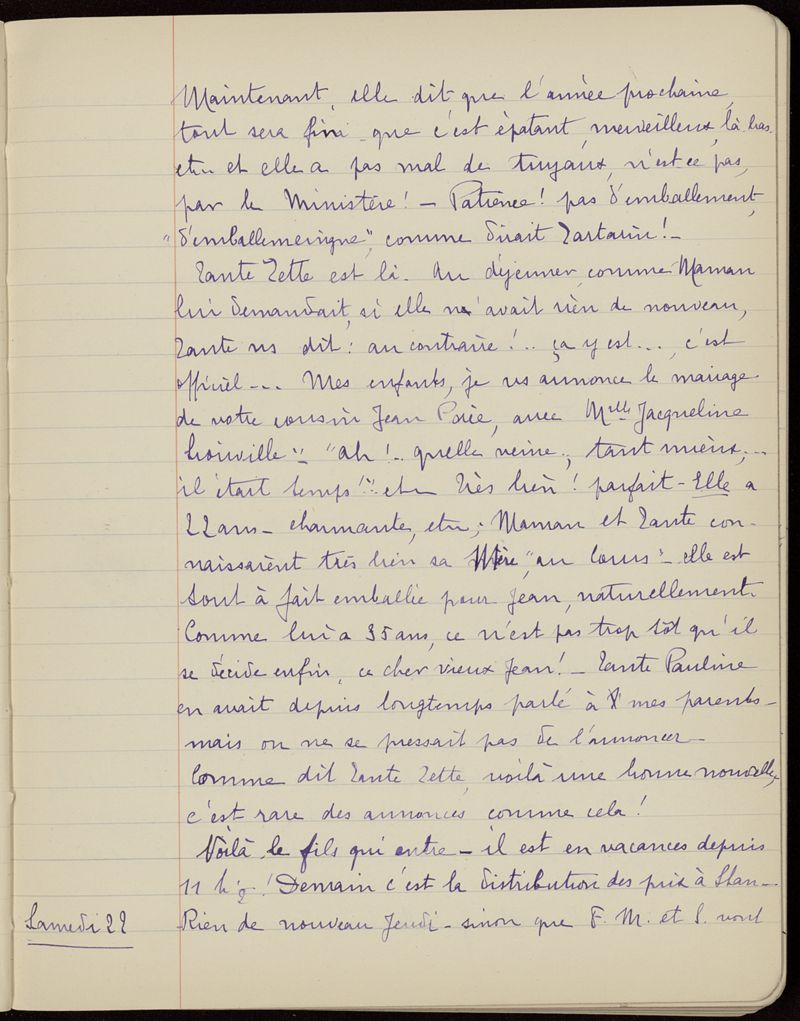 Maintenant, elle dit que l'année prochaine,
tout sera fini - que c'est épatant, merveilleux, là-bas.
etc. et elle a pas mal de tuyaux, n'est-ce pas,
par le Ministère ! - Patience ! pas d'emballement,
"d'emballemeingne", comme dirait Tartarin ! -
Tante Zette est là. Au déjeuner, comme Maman
lui demandait, si elle n'avait rien de nouveau,
Tante ns dit : au contraire !.. ça y est..., c'est
officiel... Mes enfants, je vs annonce le mariage
de votre cousin Jean , avec Melle Jacqueline
" - "ah !.. quelle veine.., tant mieux,...
il était temps !" etc. Très bien ! parfait - Elle a
22 ans - charmante, etc ; Maman et Tante con-
naissaient très bien sa Mère, "au Cours" - elle est
tout à fait emballée pour Jean, naturellement.
Comme lui a 35 ans, ce n'est pas trop tôt qu'il
se décide enfin, ce cher vieux Jean ! - Tante Pauline
en avait depuis longtemps parlé à mes parents -
mais on ne se pressait pas de l'annoncer -
Comme dit Tante Zette, voilà une bonne nouvelle,
c'est rare des annonces comme cela !
Voilà le fils qui entre - il est en vacances depuis
11 h ½ ! Demain c'est la distribution des prix à Stan -
Samedi 22
Rien de nouveau Jeudi - sinon que F. M. et S. vont